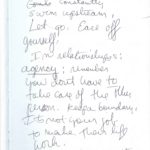 constantly
swim upstream,
Let go. Ease off
yourself,
I'm relationships:
agency: remember
you don't have to
take care of the other
person. Keep a boundary,
It's not your job
to make their life
work.